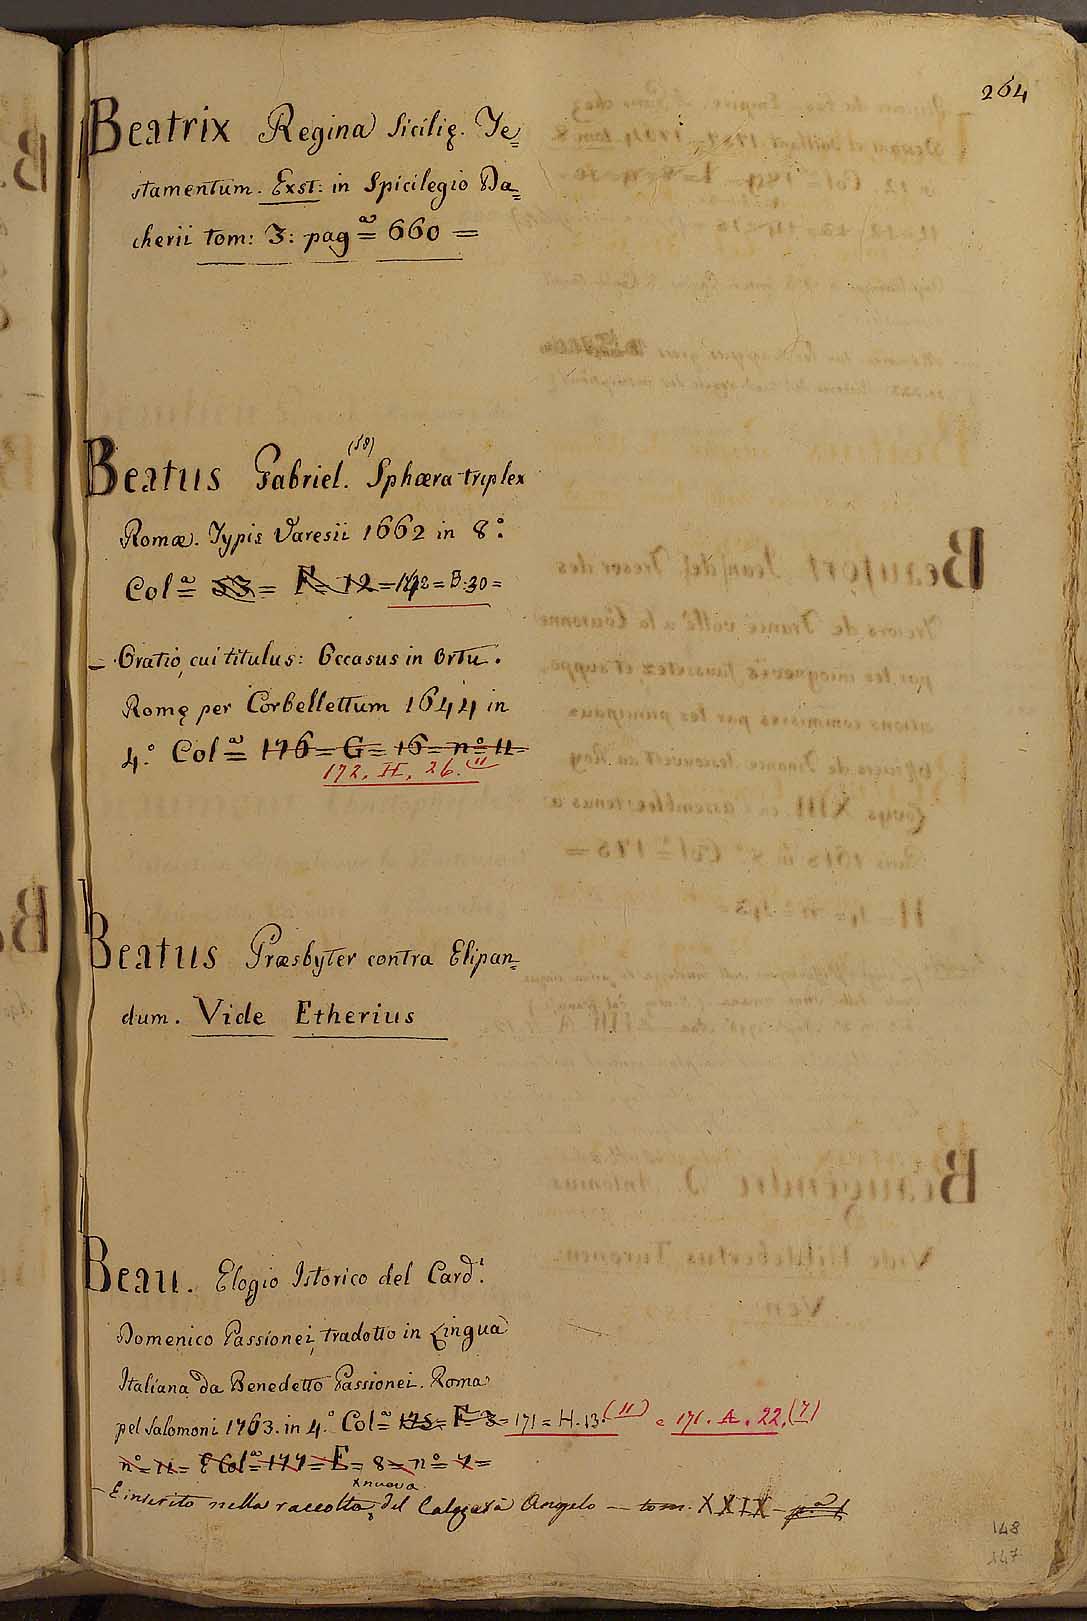 264
Beatrix Regina Sicilię. Te=
stamentum. Exst: in Spicilegio Da=
cherii tom: 3: pag.ª = 660 =
(58)
Beatus Gabriel. Sphæra triplex
Romæ. Typis Varesii 1662 in 8.º
Col.ª = 53 = F = 12 = 142 = B. 30 =
– Oratio, cui titulus: Occasus in Ortu.
Romę per Corbellettum 1644 in
4.º Col.ª = 176 = G = 16 = nº 11 =
172. H. 26. (11
Beatus Præsbyter contra Elipan=
dum. Vide Etherius
Beau. Elogio Istorico del Card.l
Domenico Passionei, tradotto in Lingua
Italiana da Benedetto Passionei. Roma
pel Salomoni 1763. in 4.º Col.ª = 175 = F = 3 = 171 = H. 13. (11) e 171. A. 22. (7)
nº = 11 = E Col.ª = 177 = E = 8 = nº = 7 =
x nuova
– E inserito nella raccolta x del Calogerà Angelo – tom. XXIX – p.ª 1
148
147